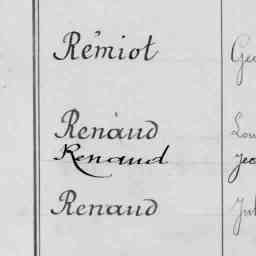 Rémiot
Renaud
Renaud
Renaud